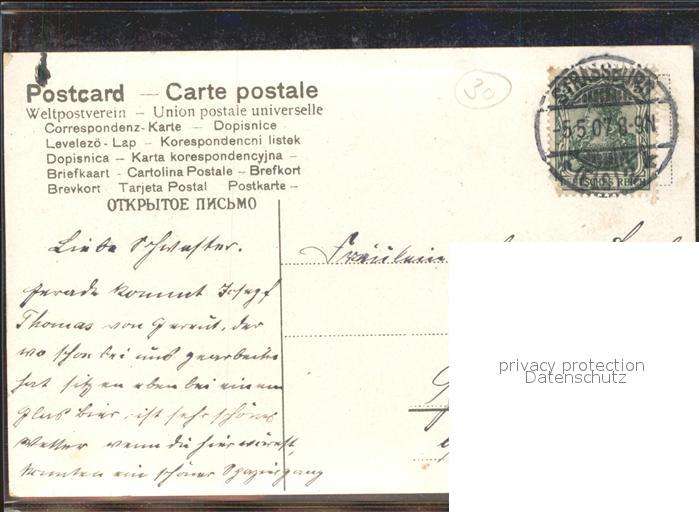 30
Postcard — Carte postale
Weltpostverein — Union postale universelle
Correspondenz-Karte — Dopisnice
Levelezö-Lap — Korespondencni listek
Dopisnica — Karta korespondencyjna —
Briefkaart - Cartolina Postale - Brefkort
Brevkort Tarjeta Postal Postkarte —
ОТКРЫТОЕ ПИСЬМО
STRASSBURG
5.5.07.8-9N
DEUTSCHES REICH
Liebe Schwester.
Fräulein
gerade kommt Josepf
Thomas von Gereut, der
wo schon bei uns gearbeitet
hat sitzen eben bei einem
glas bier, ist sehr schönes
Wetter wenn du hier wärest,
konnten ein schöner Spaziergang
privacy protection
Datenschutz